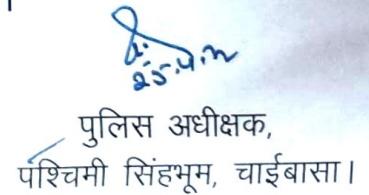 पुलिस अधीक्षक,
पश्चिमी सिंहभूम, चाईबासा।